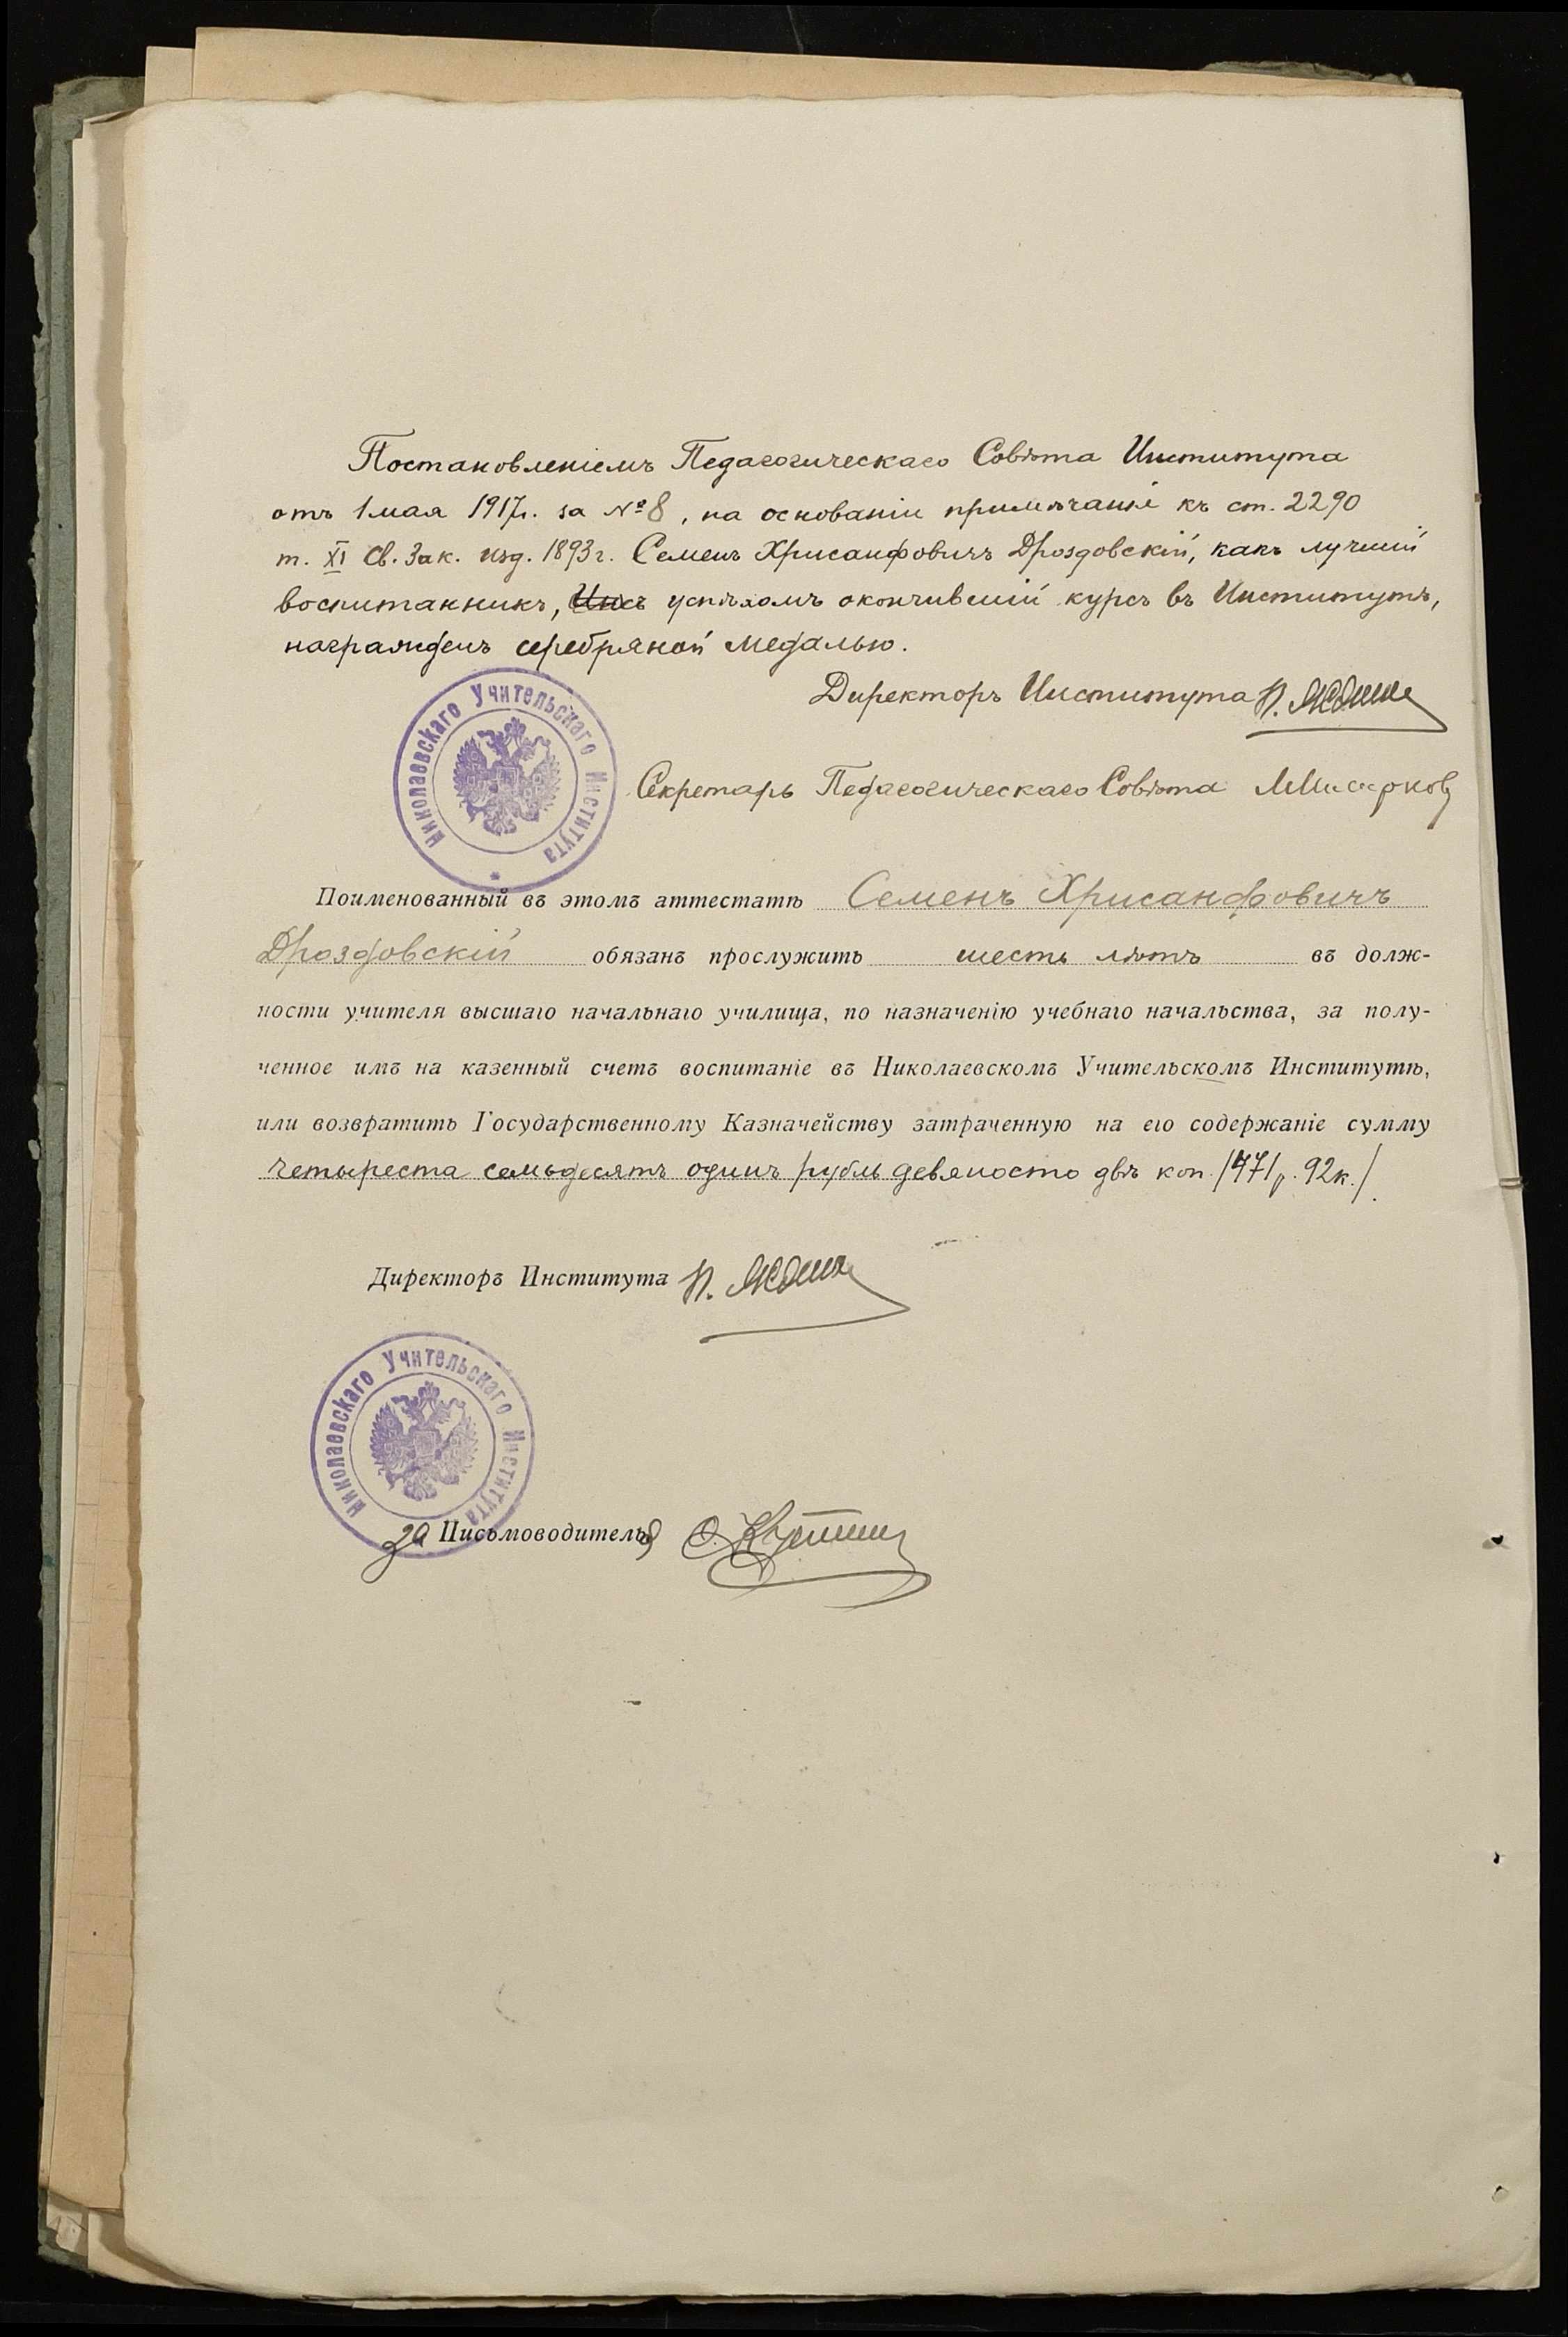 Постановленіемъ Педагогическаго Совѣта Института
отъ 1 мая 1917 г. за № 8, на основаніи примѣчанія къ ст. 2290
т. XI Св. Зак. изд. 1893 г. Семенъ Хрисанфовичъ Дроздовскій, какъ лучшій
воспитанникъ, съ успѣхомъ окончившій курсъ въ Институтѣ,
награжденъ серебряной медалью.
Директоръ Института
Николаевскаго Учительскаго Института
Секретарь Педагогическаго Совѣта
Поименованный въ этомъ аттестатѣ Семенъ Хрисанфовичъ
Дроздовскій обязанъ прослужить шесть лѣтъ въ долж-
ности учителя высшаго начальнаго училища, по назначенію учебнаго начальства, за полу-
ченное имъ на казенный счетъ воспитаніе въ Николаевскомъ Учительскомъ Институтѣ,
или возвратить Государственному Казначейству затраченную на его содержаніе сумму
четыреста семьдесятъ одинъ рубль девяносто двѣ коп. /471 р. 92 к./.
Директоръ Института
Николаевскаго Учительскаго Института
за Письмоводителя